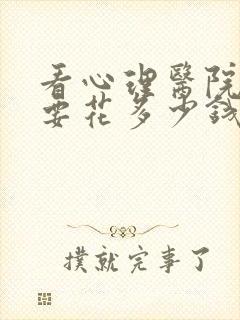 看心理醫院
要花多少錢
撲就完事了